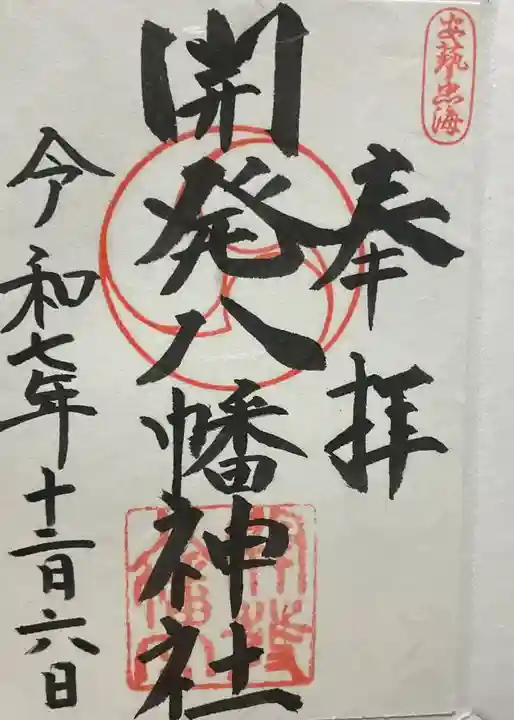 安藝忠海
奉拝
開発八幡神社
令和七年十二月六日